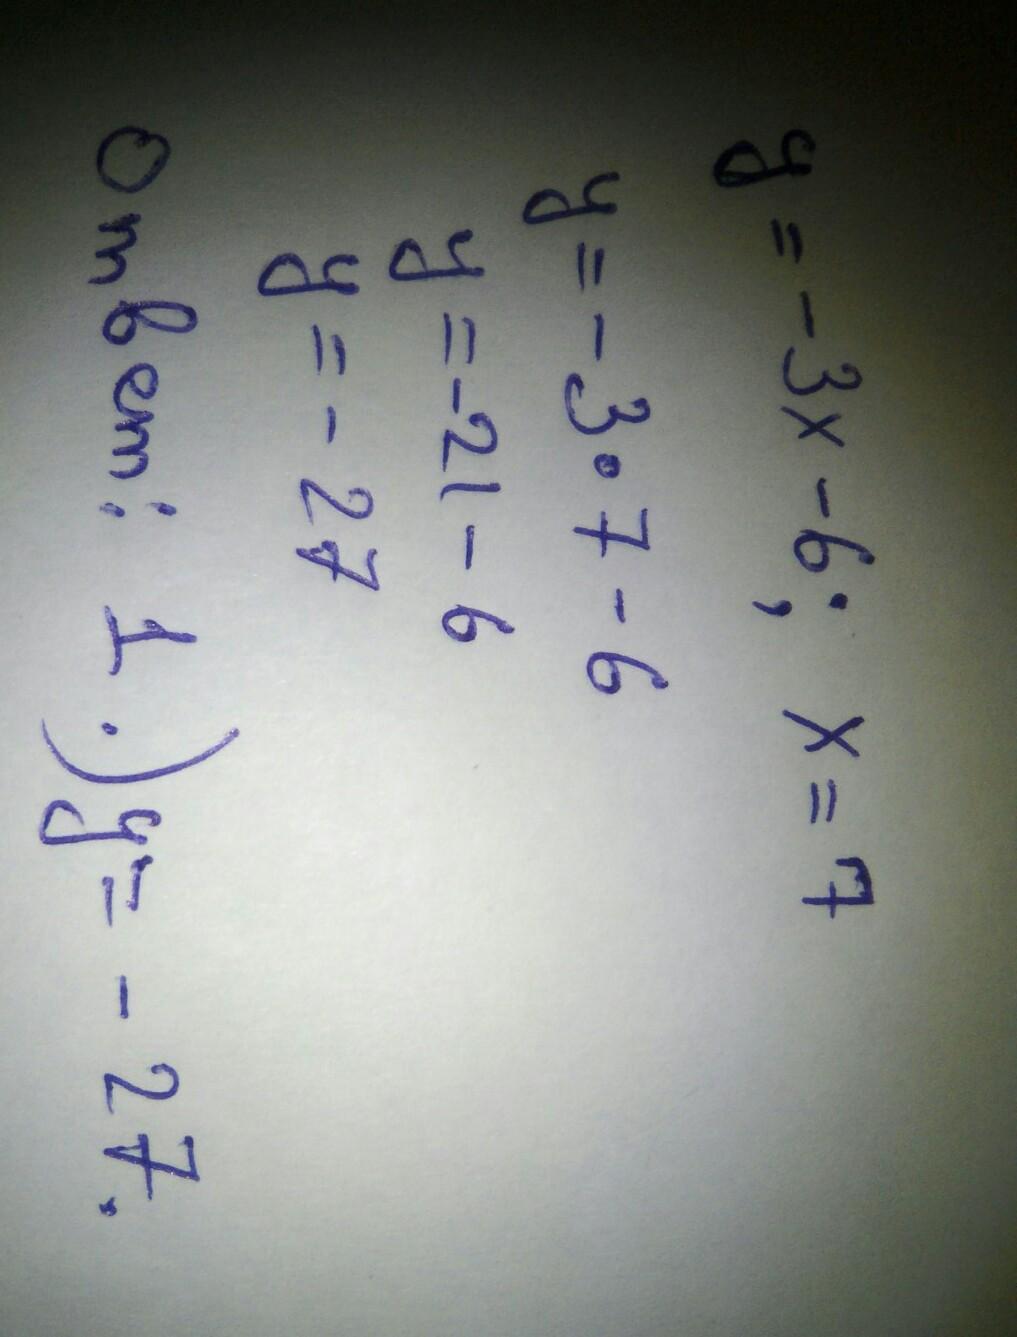 y = -3x - 6; x = 7
y = -3 • 7 - 6
y = -21 - 6
y = - 27
Ответ: 1.) y = - 27.